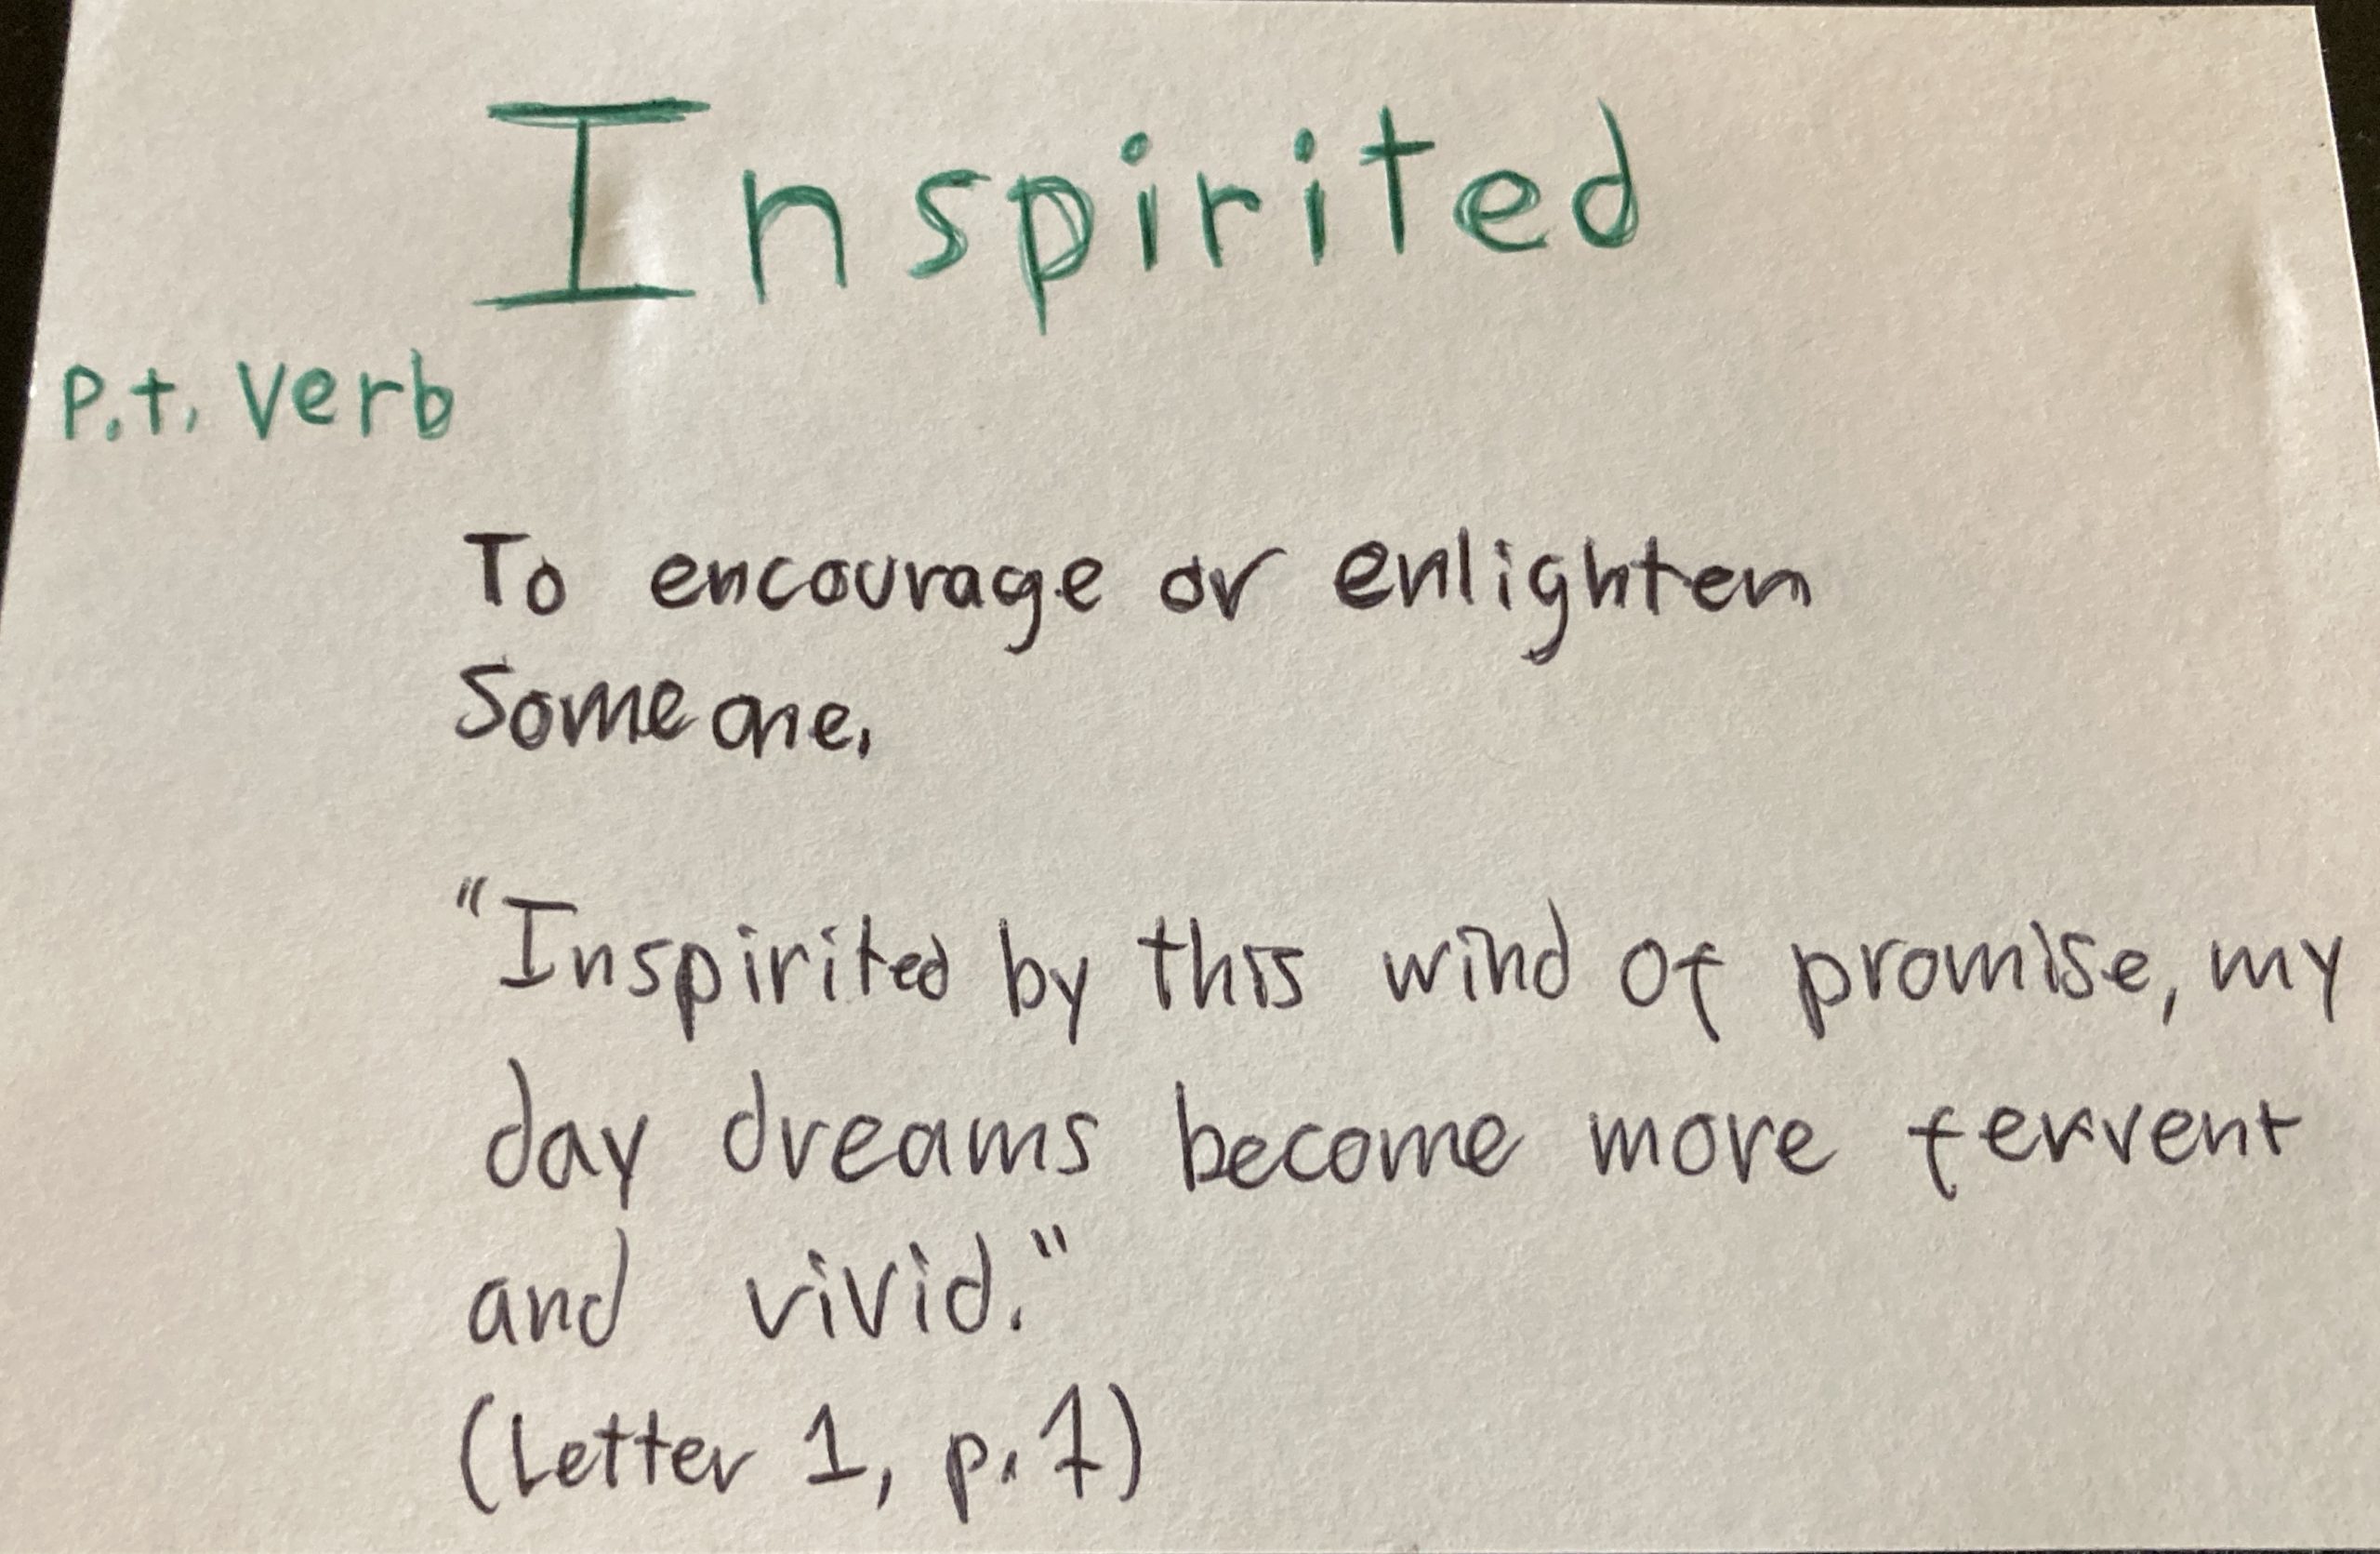 Inspirited
P.t. Verb
To encourage or enlighten
Someone.
"Inspirited by this wind of promise, my
day dreams become more fervent
and vivid."
(Letter 1, p.1)